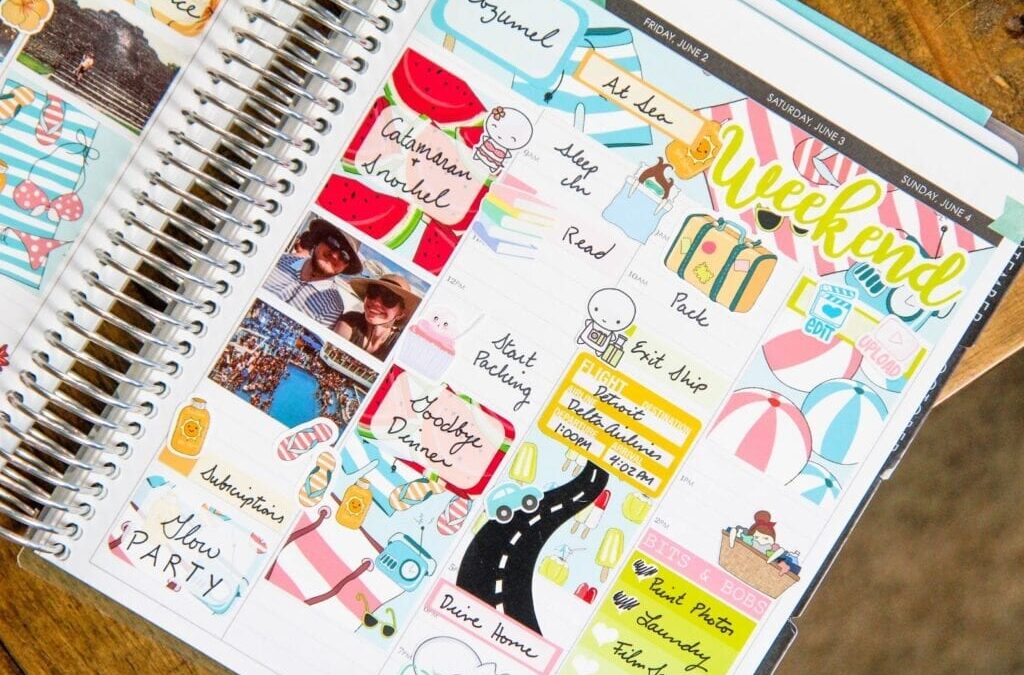 FRIDAY, JUNE 2
SATURDAY, JUNE 3
SUNDAY, JUNE 4
Cozumel
Catamaran
+
Snochel
Subcriptions
Glow
PARTY
At Sea
9AM
Sleep
In
Read
12PM
Start
Packing
Goodbye
Dinner
Weekend
9AM
Pack
10AM
Exit Ship
FLIGHT
Detroit
DESTINATION
Delta Airlines
1:00PM
4:02PM
Drive Home
7PM
EDIT
UPLOAD
1PM
2PM
BITS & BOBS
Print Photos
Laundry